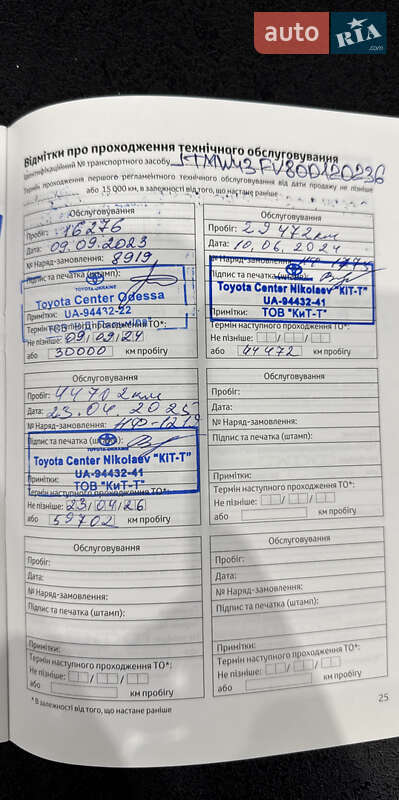 auto RIA.com
Відмітки про проходження технічного обслуговування
Ідентифікаційний № транспортного засобу JTMW43FV80D120236
Термін проходження першого регламентного технічного обслуговування від дати продажу не пізніше
або 15 000 км, в залежності від того, що настане раніше
Обслуговування
Пробіг: 16276
Дата: 09.09.2023
№ Наряд-замовлення: 8919
Підпис та печатка (штамп):
TOYOTA-UKRAINE
Toyota Center Odessa
Примітки: UA-94432-22
Термін наступного проходження ТО*:
Не пізніше: 09/09/24
або 30000 км пробігу
Обслуговування
Пробіг: 29472км
Дата: 10.06.2024
№ Наряд-замовлення:
Підпис та печатка (штамп):
Toyota Center Nikolaev "KIT-T"
UA-94432-41
Примітки: ТОВ "КиТ-Т"
Термін наступного проходження ТО*:
Не пізніше:
або 44472 км пробігу
Обслуговування
Пробіг: 44702км
Дата: 23.04.2025
№ Наряд-замовлення:
Підпис та печатка (штамп):
TOYOTA-UKRAINE
Toyota Center Nikolaev "KIT-T"
UA-94432-41
Примітки: ТОВ "КиТ-Т"
Термін наступного проходження ТО*:
Не пізніше: 23/04/26
або 59702 км пробігу
Обслуговування
Пробіг:
Дата:
№ Наряд-замовлення:
Підпис та печатка (штамп):
Примітки:
Термін наступного проходження ТО*:
Не пізніше: / /
або км пробігу
Обслуговування
Пробіг:
Дата:
№ Наряд-замовлення:
Підпис та печатка (штамп):
Примітки:
Термін наступного проходження ТО*:
Не пізніше: / /
або км пробігу
Обслуговування
Пробіг:
Дата:
№ Наряд-замовлення:
Підпис та печатка (штамп):
Примітки:
Термін наступного проходження ТО*:
Не пізніше: / /
або км пробігу
* В залежності від того, що настане раніше
25